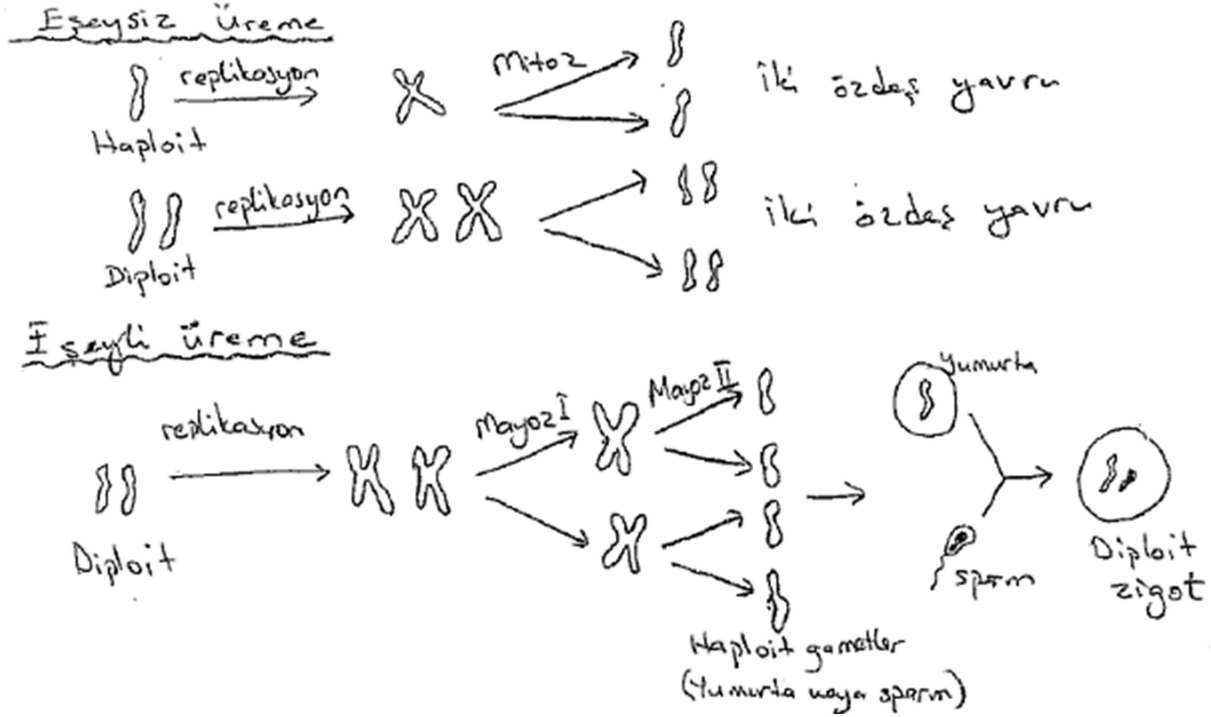 Eşeysiz Üreme
replikasyon
Mitoz
iki özdeş yavru
Haploit
replikasyon
iki özdeş yavru
Diploit
Eşeyli üreme
replikasyon
Mayoz I
Mayoz II
Yumurta
Diploit
sperm
Diploit
zigot
Haploit gametler
(Yumurta veya sperm)